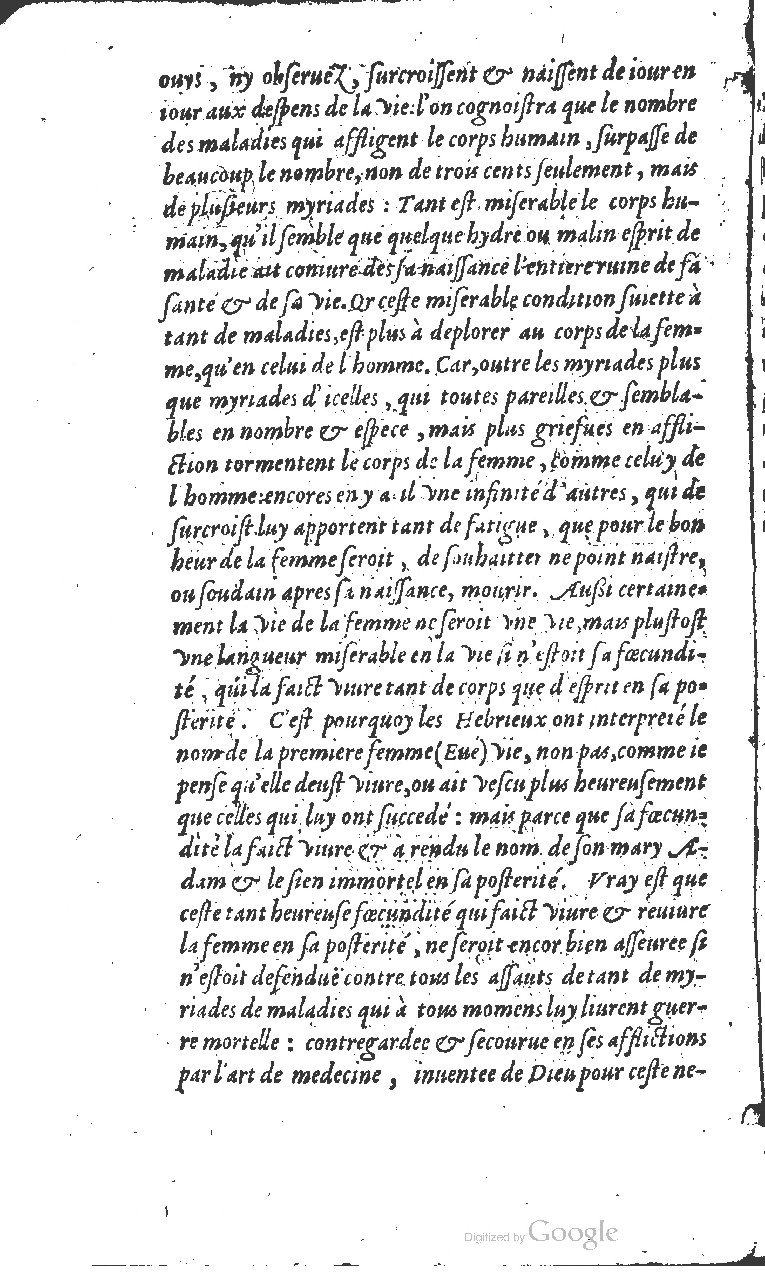 ouys, ny obseruez, surcroissent & naissent de iour en
iour aux despens de la vie: l'on cognoistra que le nombre
des maladies qui affligent le corps humain, surpasse de
beaucoup le nombre, non de trois cents seulement, mais
de plusieurs myriades : Tant est miserable le corps hu-
main, qu'il semble que quelque hydre ou malin esprit de
maladie ait coniuré dès sa naissance l'entiere ruine de sa
santé & de sa vie. Or ceste miserable condition suiette à
tant de maladies, est plus à deplorer au corps de la fem-
me, qu'en celui de l'homme. Car, outre les myriades plus
que myriades d'icelles, qui toutes pareilles & sembla-
bles en nombre & espece, mais plus griefues en affli-
ction tormentent le corps de la femme, comme celuy de
l'homme: encores en y a il vne infinité d'autres, qui de
surcroist luy apportent tant de fatigue, que pour le bon
heur de la femme seroit, de souhaitter ne point naistre,
ou soudain apres sa naissance, mourir. Aussi certaine-
ment la vie de la femme ne seroit vne vie, mais plustost
vne langueur miserable en la vie si n'estoit sa fœcundi-
té, qui la faict viure tant de corps que d'esprit en sa po-
sterité. C'est pourquoy les Hebrieux ont interpreté le
nom de la premiere femme (Eue) vie, non pas, comme ie
pense qu'elle deust viure, ou ait vescu plus heureusement
que celles qui luy ont succedé : mais parce que sa fœcun-
dité la faict viure & à rendu le nom de son mary A-
dam & le sien immortel en sa posterité. Vray est que
ceste tant heureuse fœcundité qui faict viure & reuiure
la femme en sa posterité, ne seroit encor bien asseuree si
n'estoit defenduë contre tous les assauts de tant de my-
riades de maladies qui à tous momens luy liurent guer-
re mortelle : contregardee & secourue en ses afflictions
par l'art de medecine, inuentee de Dieu pour ceste ne-
Digitized by Google